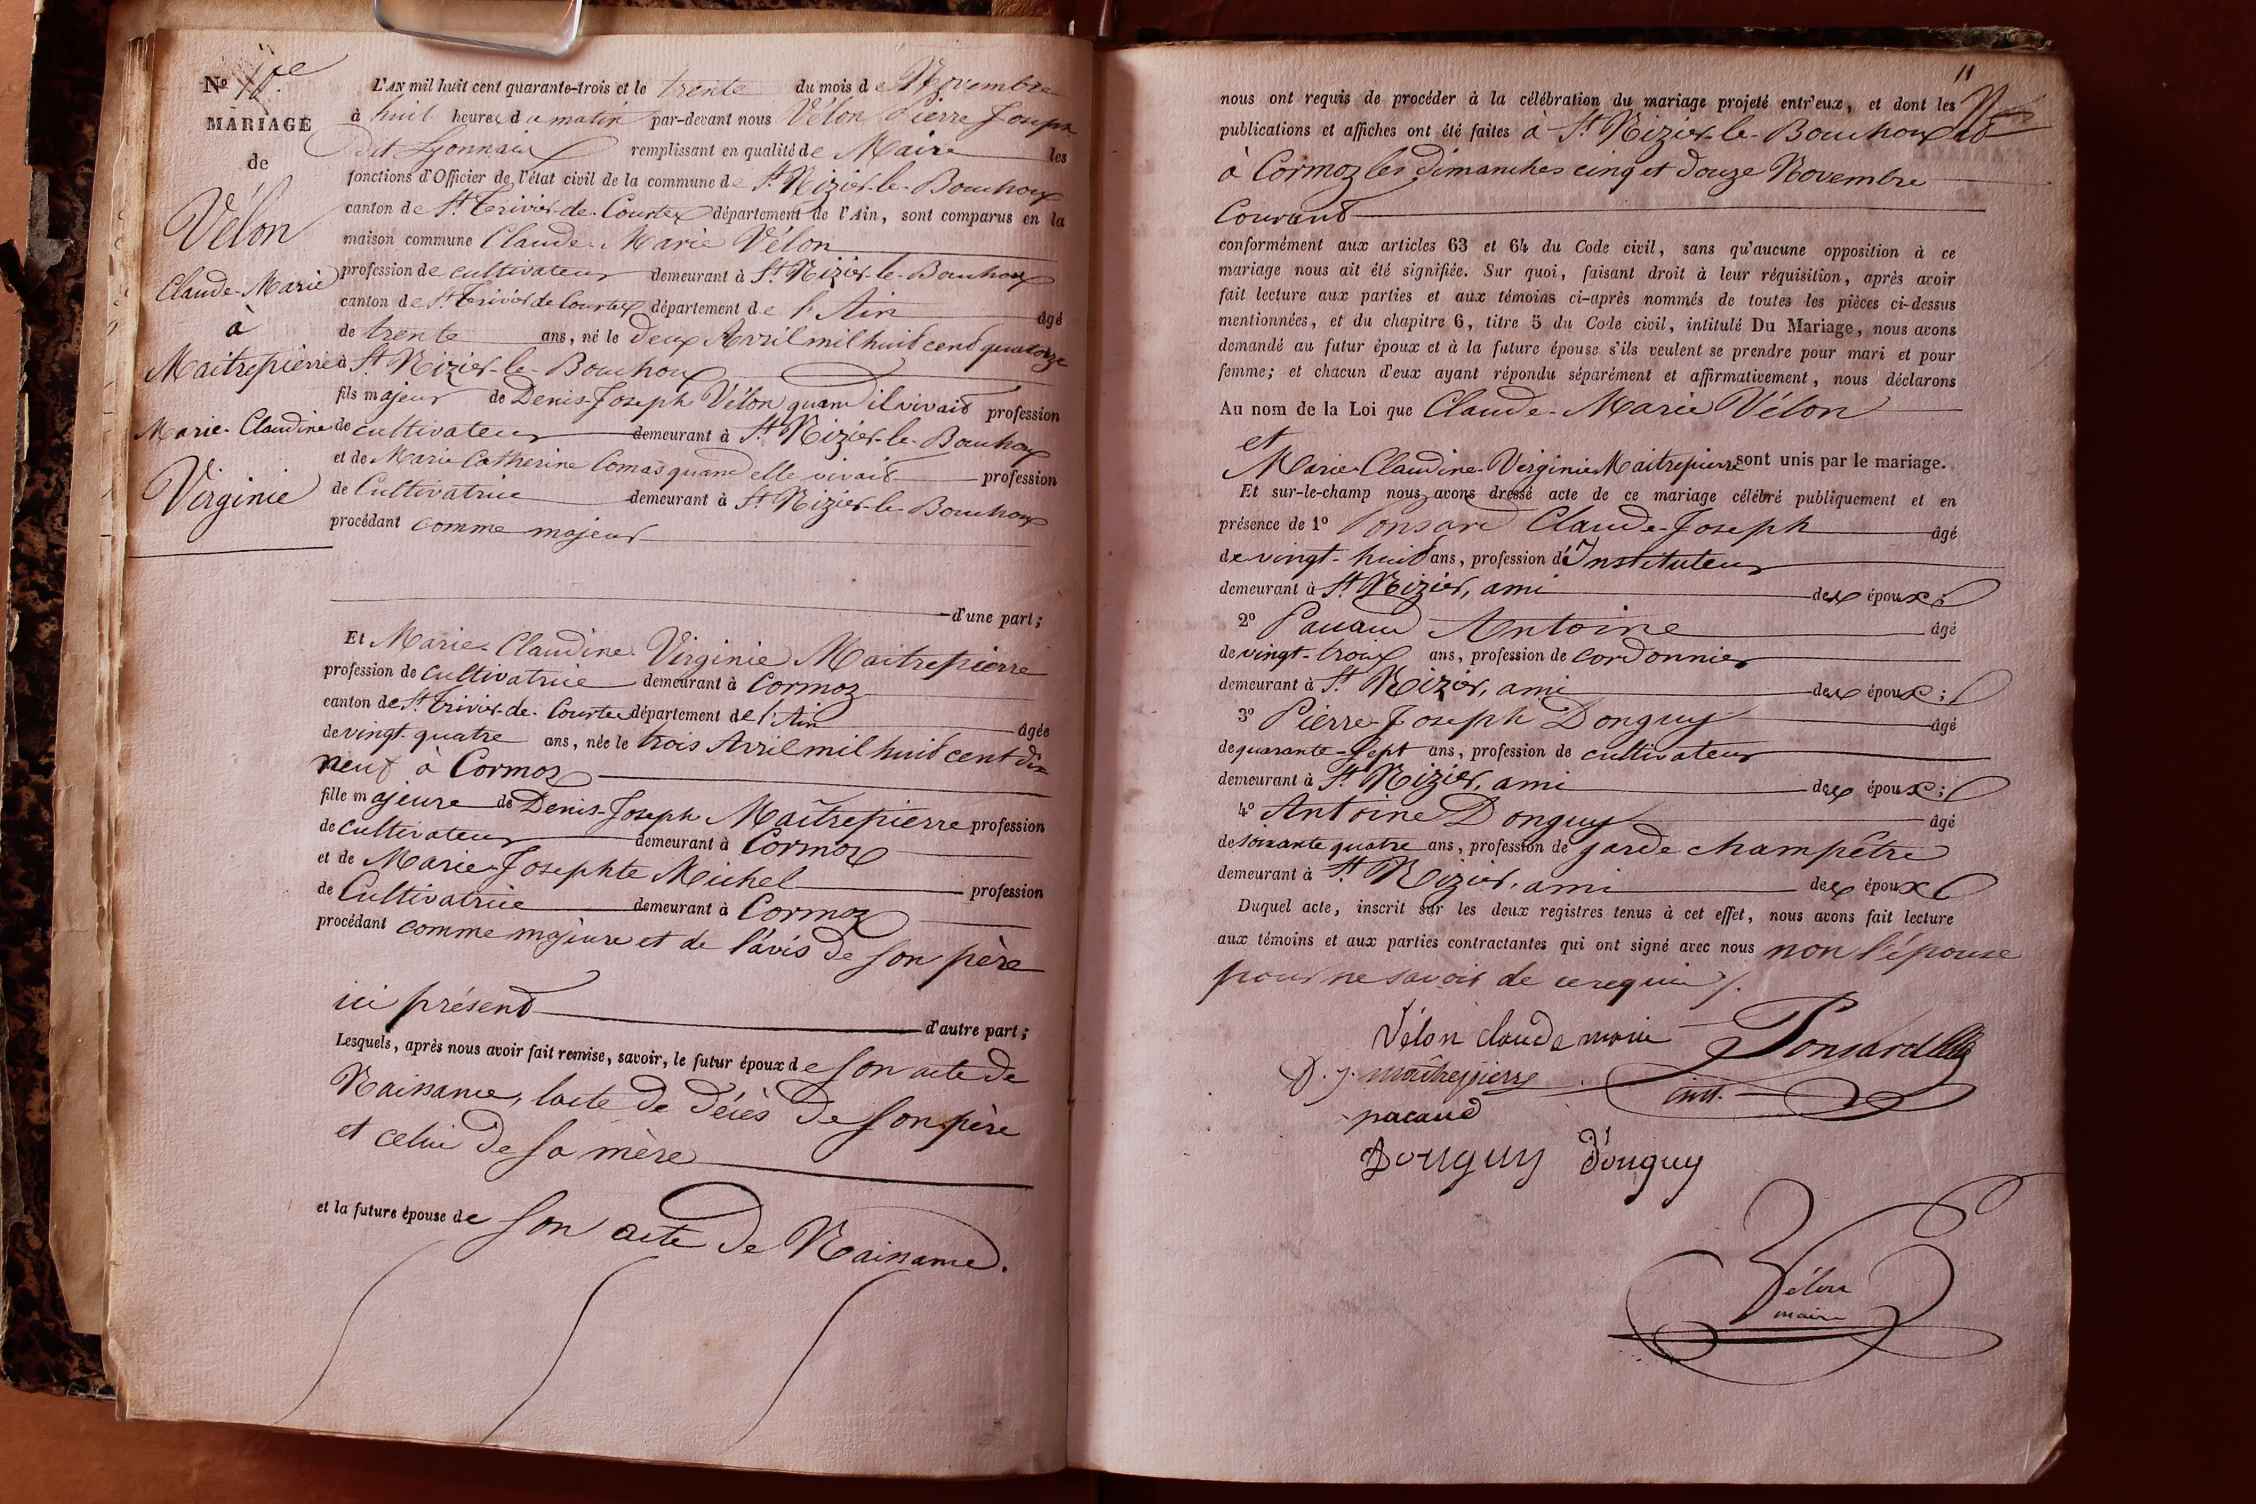 Nº 10e
MARIAGE
de
Vélon
Claude-Marie
à
Maitrepierre
Marie-Claudine
Virginie
L'AN mil huit cent quarante-trois et le trente du mois de Novembre
à huit heures du matin par-devant nous Vélon Pierre Joseph
dit Lyonnais remplissant en qualité de Maire les
fonctions d'Officier de l'état civil de la commune de St. Nizier-le-Bouchoux
canton de St. Trivier-de-Courtes département de l'Ain, sont comparus en la
maison commune Claude-Marie Vélon
profession de cultivateur demeurant à St. Nizier-le-Bouchoux
canton de St. Trivier de Courtes département de l'Ain âgé
de trente ans, né le deux Avril mil huit cent quatorze
à St. Nizier-le-Bouchoux
fils majeur de Denis-Joseph Vélon quand il vivait profession
de cultivateur demeurant à St. Nizier-le-Bouchoux
et de Marie Catherine Comas quand elle vivait profession
de Cultivatrice demeurant à St. Nizier-le-Bouchoux
procédant comme majeur
d'une part;
Et Marie-Claudine Virginie Maitrepierre
profession de cultivatrice demeurant à Cormoz
canton de St. Trivier-de-Courtes département de l'Ain âgée
de vingt-quatre ans, née le trois Avril mil huit cent dix
neuf à Cormoz
fille majeure de Denis-Joseph Maîtrepierre profession
de cultivateur demeurant à Cormoz
et de Marie-Josephte Michel profession
de Cultivatrice demeurant à Cormoz
procédant comme majeure et de l'avis de son père
ici présent d'autre part;
Lesquels, après nous avoir fait remise, savoir, le futur époux de son acte de
Naissance, l'acte de décès de son père
et celui de sa mère
et la future épouse de son acte de Naissance.
11
nous ont requis de procéder à la célébration du mariage projeté entr'eux, et dont les
publications et affiches ont été faites à St. Nizier-le-Bouchoux et
à Cormoz les dimanches cinq et douze Novembre
Courant
conformément aux articles 63 et 64 du Code civil, sans qu'aucune opposition à ce
mariage nous ait été signifiée. Sur quoi, faisant droit à leur réquisition, après avoir
fait lecture aux parties et aux témoins ci-après nommés de toutes les pièces ci-dessus
mentionnées, et du chapitre 6, titre 5 du Code civil, intitulé Du Mariage, nous avons
demandé au futur époux et à la future épouse s'ils veulent se prendre pour mari et pour
femme; et chacun d'eux ayant répondu séparément et affirmativement, nous déclarons
Au nom de la Loi que Claude-Marie Vélon
et
Marie-Claudine-Virginie Maitrepierre sont unis par le mariage.
Et sur-le-champ nous avons dressé acte de ce mariage célébré publiquement et en
présence de 1º Ponsard Claude-Joseph âgé
de vingt-huit ans, profession d'Instituteur
demeurant à St. Nizier, ami des époux;
2º Pacaud Antoine âgé
de vingt-trois ans, profession de cordonnier
demeurant à St. Nizier, ami des époux;
3º Pierre-Joseph Donguy âgé
de quarante-sept ans, profession de cultivateur
demeurant à St. Nizier, ami des époux;
4º Antoine Donguy âgé
de soixante quatre ans, profession de garde champêtre
demeurant à St. Nizier, ami des époux
Duquel acte, inscrit sur les deux registres tenus à cet effet, nous avons fait lecture
aux témoins et aux parties contractantes qui ont signé avec nous non l'épouse
pour ne savoir de ce requis
Vélon claude marie Ponsard
D. J. maîtrepierre inst.
pacaud
Donguy Donguy
Vélon
maire